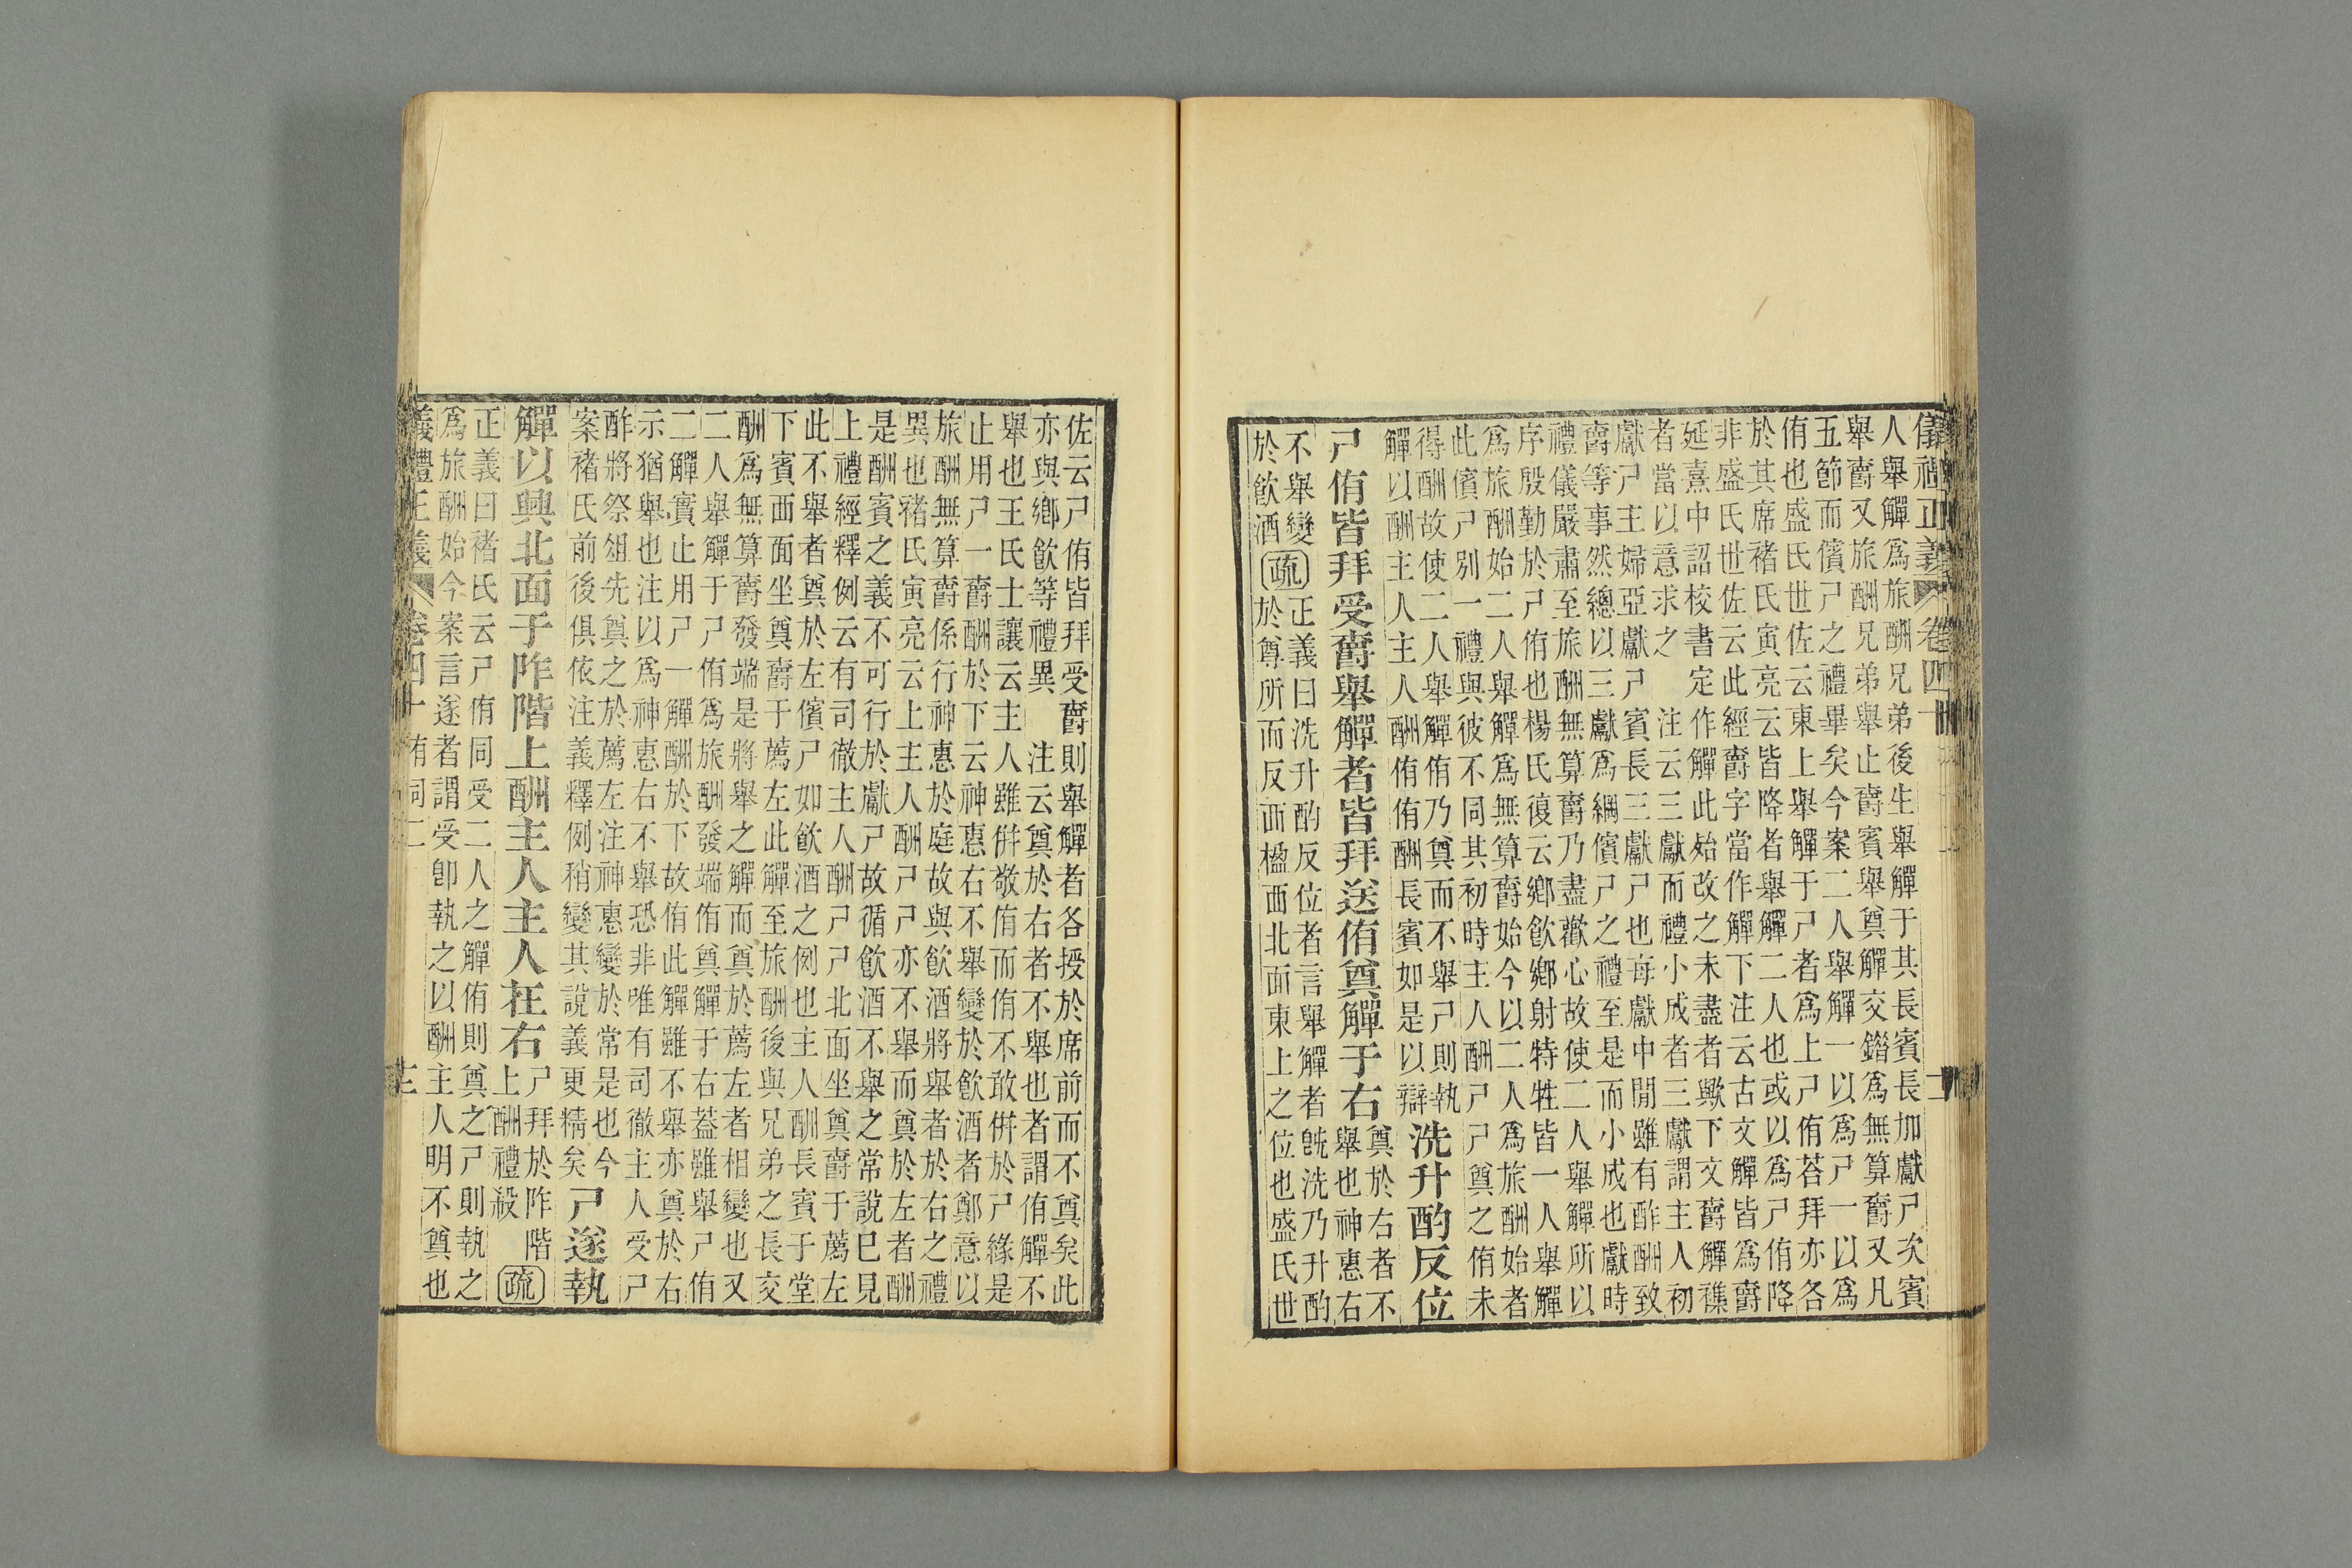 儀禮正義 卷四十 二
人舉觶爲旅酬兄弟後生舉觶于其長賓長加獻尸次賓
舉爵又旅酬兄弟舉止爵賓舉奠觶交錯爲無算爵又凡
五節而儐尸之禮畢矣今案二人舉觶一以爲尸一以爲
侑也盛氏世佐云東上舉觶于尸者爲上尸侑荅拜亦各
於其席褚氏寅亮云皆降者舉觶二人也或以爲尸侑降
非盛氏世佐云此經爵字當作觶下注云古文觶皆爲爵
延熹中詔校書定作觶此始改之未盡者歟下文爵觶襍
者當以意求之　注云三獻而禮小成者三獻謂主人初
獻尸主婦亞獻尸賓長三獻尸也每獻中閒雖有酢酬致
爵等事然總以三獻爲綱儐尸之禮至是而小成也獻時
禮儀嚴肅至旅酬無算爵乃盡歡心故使二人舉觶所以
序殷勤於尸侑也楊氏復云鄉飲鄉射特牲皆一人舉觶
爲旅酬始二人舉觶爲無算爵始今以二人爲旅酬始者
此儐尸別一禮與彼不同其初時主人酬尸尸奠之侑未
得酬故使二人舉觶侑乃奠而不舉尸則執
觶以酬主人主人酬侑侑酬長賓如是以辯 洗升酌反位
尸侑皆拜受爵舉觶者皆拜送侑奠觶于右 奠於右者不
舉也神惠右
不舉變
於飲酒 疏 正義曰洗升酌反位者言舉觶者旣洗乃升酌
於尊所而反西楹西北面東上之位也盛氏世
佐云尸侑皆拜受爵則舉觶者各授於席前而不奠矣此
亦與鄉飲等禮異　注云奠於右者不舉也者謂侑觶不
舉也王氏士讓云主人雖併敬侑而侑不敢併於尸緣是
止用尸一爵酬於下云神惠右不舉變於飲酒者鄭意以
旅酬無算爵係行神惠於庭故與飲酒將舉者於右之禮
異也褚氏寅亮云上主人酬尸尸亦不舉而奠於左者酬
是酬賓之義不可行於獻尸故循飲酒不舉之常說已見
上禮經釋例云有司徹主人酬尸尸北面坐奠爵于薦左
此不舉者奠於左儐尸如飲酒之例也主人酬長賓于堂
下賓西面坐奠爵于薦左此觶至旅酬後與兄弟之長交
酬爲無算爵發端是將舉之觶而奠於薦左者相變也又
二人舉觶于尸侑爲旅酬發端侑奠觶于右葢雖舉尸侑
二觶實止用尸一觶酬於下故侑此觶雖不舉亦奠於右
示猶舉也注以爲神惠右不舉恐非唯有司徹主人受尸
酢將祭俎先奠之於薦左注神惠變於常是也今
案褚氏前後俱依注義釋例稍變其說義更精矣 尸遂執
觶以興北面于阼階上酬主人主人在右 尸拜於阼階
上酬禮殺 疏
正義曰褚氏云尸侑同受二人之觶侑則奠之尸則執之
爲旅酬始今案言遂者謂受卽執之以酬主人明不奠也
義禮正義 卷四十 有司二 三